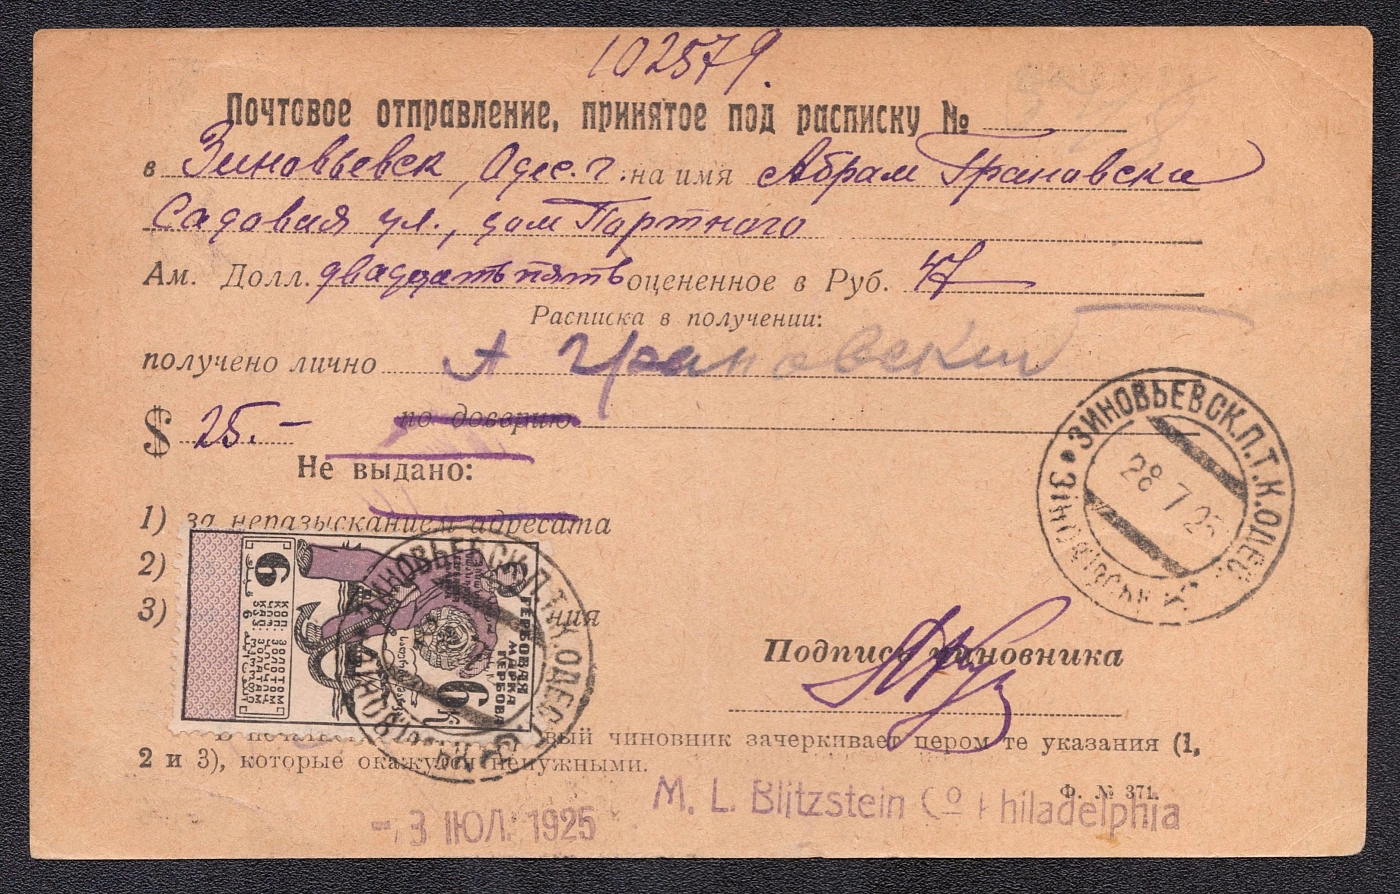 102579.
Почтовое отправление, принятое под расписку №
в Зиновьевск, Одес. г. на имя Абрам Грановски
Садовая ул., дом Портного
Ам. Долл. двадцать пять оцененное в Руб. 47
Расписка в получении:
получено лично А Грановский
$ 25.- по доверию
Не выдано:
1) за неразысканием адресата
2)
3) ния
6
КОП. ЗОЛОТОМ
6 к
ГЕРБОВАЯ
МАРКА
ЗИНОВЬЕВСК.П.Т.К.ОДЕС.
ЗИНОВЬЕВСК.П.Т.К.ОДЕС.
28 7 25
Подпись чиновника
вый чиновник зачеркивает пером те указания (1,
2 и 3), которые окажутся ненужными.
Ф. № 371.
M. L. Blitzstein Co Philadelphia
- 3 ІЮЛ. 1925